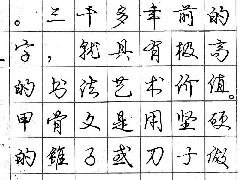 。三千多年前的
字，就具有极高
的书法艺术价值。
甲骨文是用坚硬
的锥子或刀子做